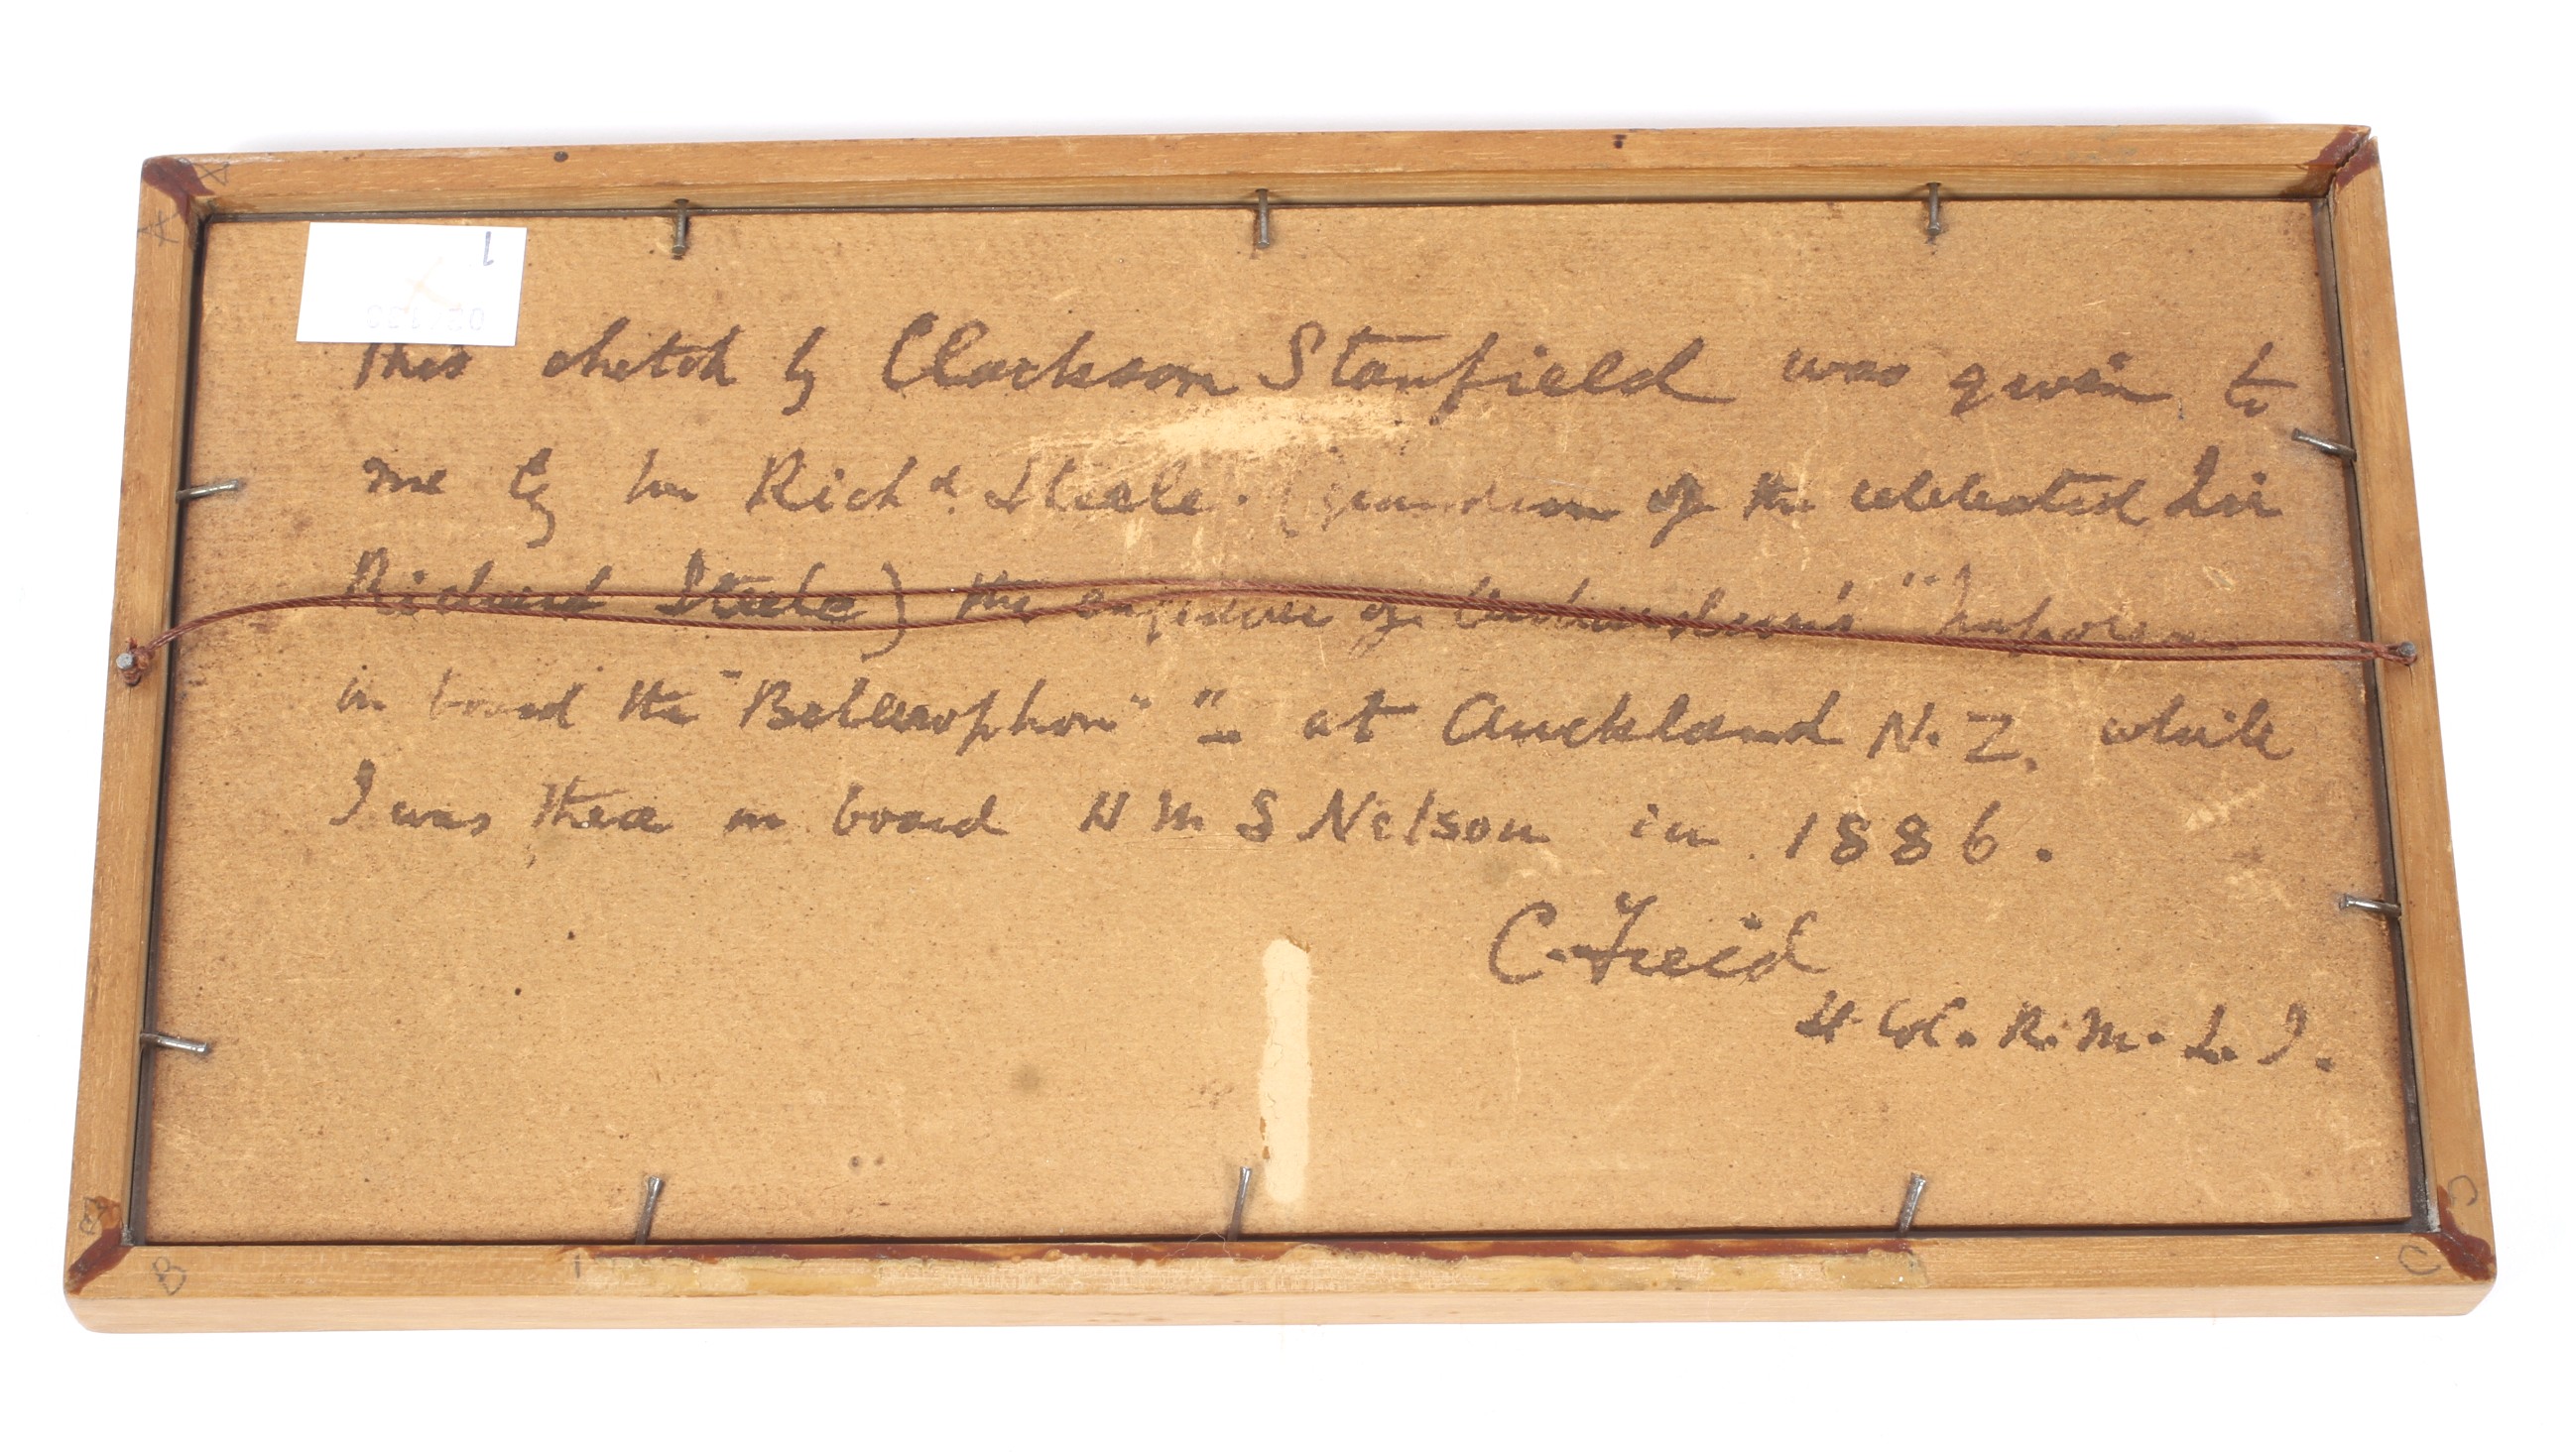 1
This sketch by Clarkson Stanfield was given to
me by Mr Richd. Steele. (grandson of the celebrated Sir
Richard Steele) the engraver of Orchardson's "Napoleon
on board the "Bellerophon" " – at Auckland N.Z. while
I was there on board H M S Nelson in 1886.
C. Field
Lt Col. R. M. L. I.
A
B
C
C